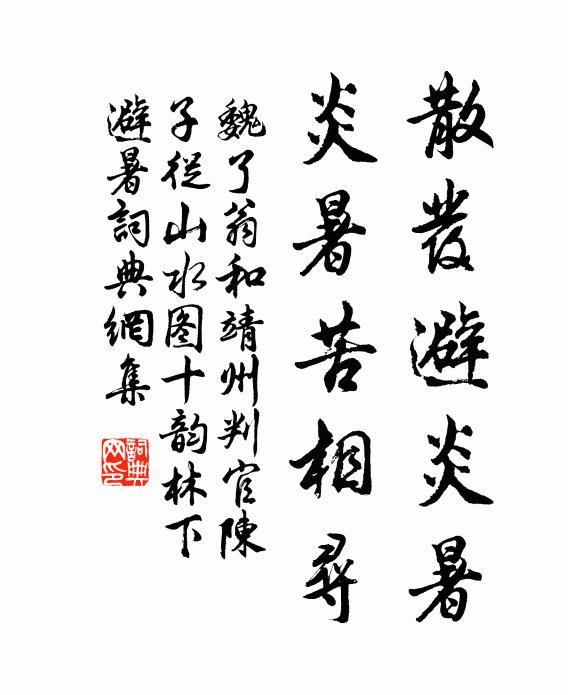 散發避炎暑
炎暑苦相尋
魏了翁和靖州判官陳
子從山水图十韵林下
避暑詞典網集
詞典
网印